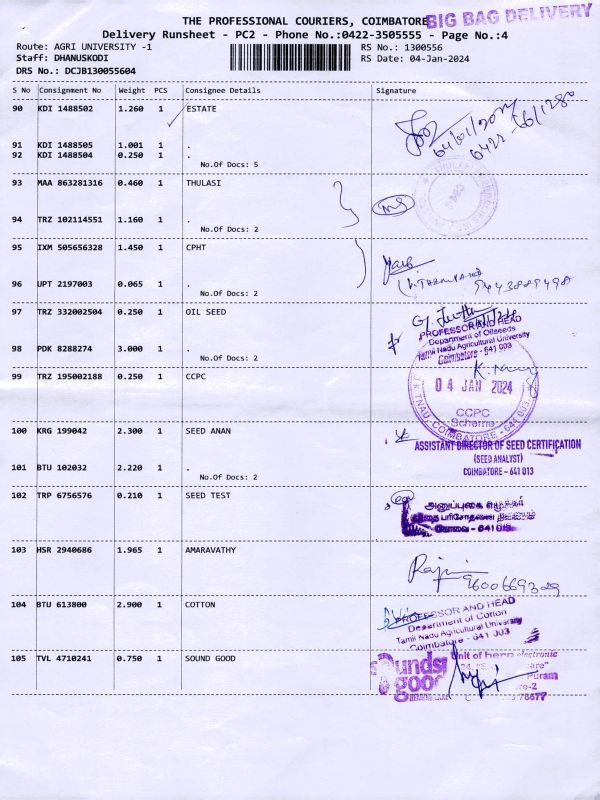 THE PROFESSIONAL COURIERS, COIMBATORE
BIG BAG DELIVERY
Delivery Runsheet - PC2 - Phone No.:0422-3505555 - Page No.:4
Route: AGRI UNIVERSITY -1
RS No.: 1300556
Staff: DHANUSKODI
RS Date: 04-Jan-2024
DRS No.: DCJB130055604
S No Consignment No Weight PCS Consignee Details Signature
90 KDI 1488502 1.260 1 ESTATE
91 KDI 1488505 1.001 1 .
92 KDI 1488504 0.250 1 .
No.Of Docs: 5
93 MAA 863281316 0.460 1 THULASI
94 TRZ 102114551 1.160 1 .
No.Of Docs: 2
95 IXM 505656328 1.450 1 CPHT
96 UPT 2197003 0.065 1 .
No.Of Docs: 2
97 TRZ 332002504 0.250 1 OIL SEED
PROFESSOR AND HEAD
Department of Oilseeds
Tamil Nadu Agricultural University
Coimbatore - 641 003
98 PDK 8288274 3.000 1 .
No.Of Docs: 2
99 TRZ 195002188 0.250 1 CCPC
04 JAN 2024
CCPC
Scheme
TNAU, COIMBATORE - 641 003.
100 KRG 199042 2.300 1 SEED ANAN
ASSISTANT DIRECTOR OF SEED CERTIFICATION
(SEED ANALYST)
COIMBATORE - 641 013
101 BTU 102032 2.220 1 .
No.Of Docs: 2
102 TRP 6756576 0.210 1 SEED TEST
103 HSR 2940686 1.965 1 AMARAVATHY
9600669329
104 BTU 613800 2.900 1 COTTON
PROFESSOR AND HEAD
Department of Cotton
Tamil Nadu Agricultural University
Coimbatore - 641 003
105 TVL 4710241 0.750 1 SOUND GOOD
sounds
good